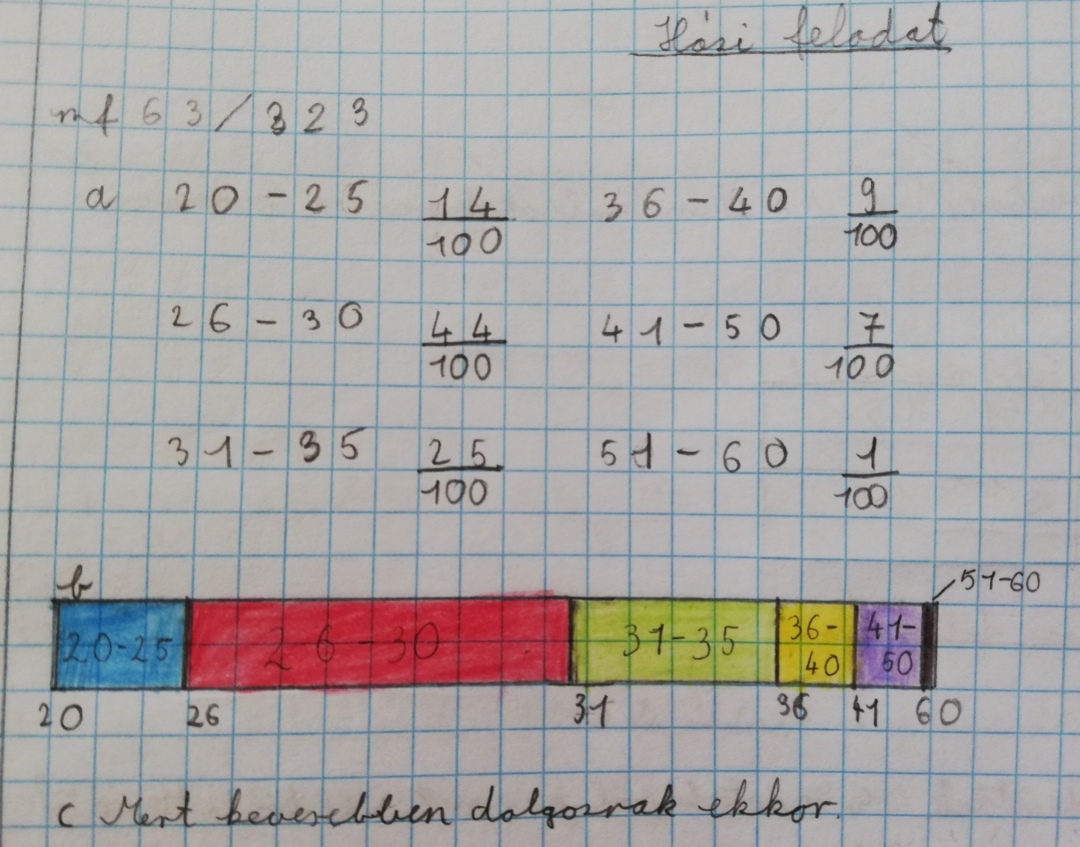 Házi feladat
mf 63/323
a 20-25 14/100 36-40 9/100
26-30 44/100 41-50 7/100
31-35 25/100 51-60 1/100
b
51-60
20-25 26-30 31-35 36-40 41-50
20 26 31 36 41 60
c Mert kevesebben dolgoznak ekkor.